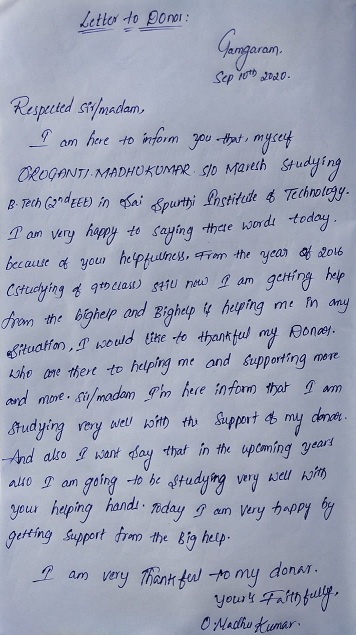 Letter to Donor:
Gangaram.
Sep 10th 2020.
Respected sir/madam,
I am here to inform you that, myself
OROGANTI. MADHUKUMAR S/o Maresh Studying
B.Tech (2nd EEE) in Sai Spurthi Institute of Technology.
I am very happy to saying these words today.
because of your helpfulness, From the year of 2016
(studying of 9th class) still now I am getting help
from the bighelp and Bighelp is helping me in any
Situation, I would like to thankful my Donor.
who are there to helping me and supporting more
and more. Sir/madam I'm here inform that I am
studying very well with the support of my donar.
And also I want say that in the upcoming years
also I am going to be studying very well with
your helping hands. Today I am very happy by
getting support from the Big help.
I am very Thankful to my donar.
your's Faithfully,
O.Madhu Kumar.